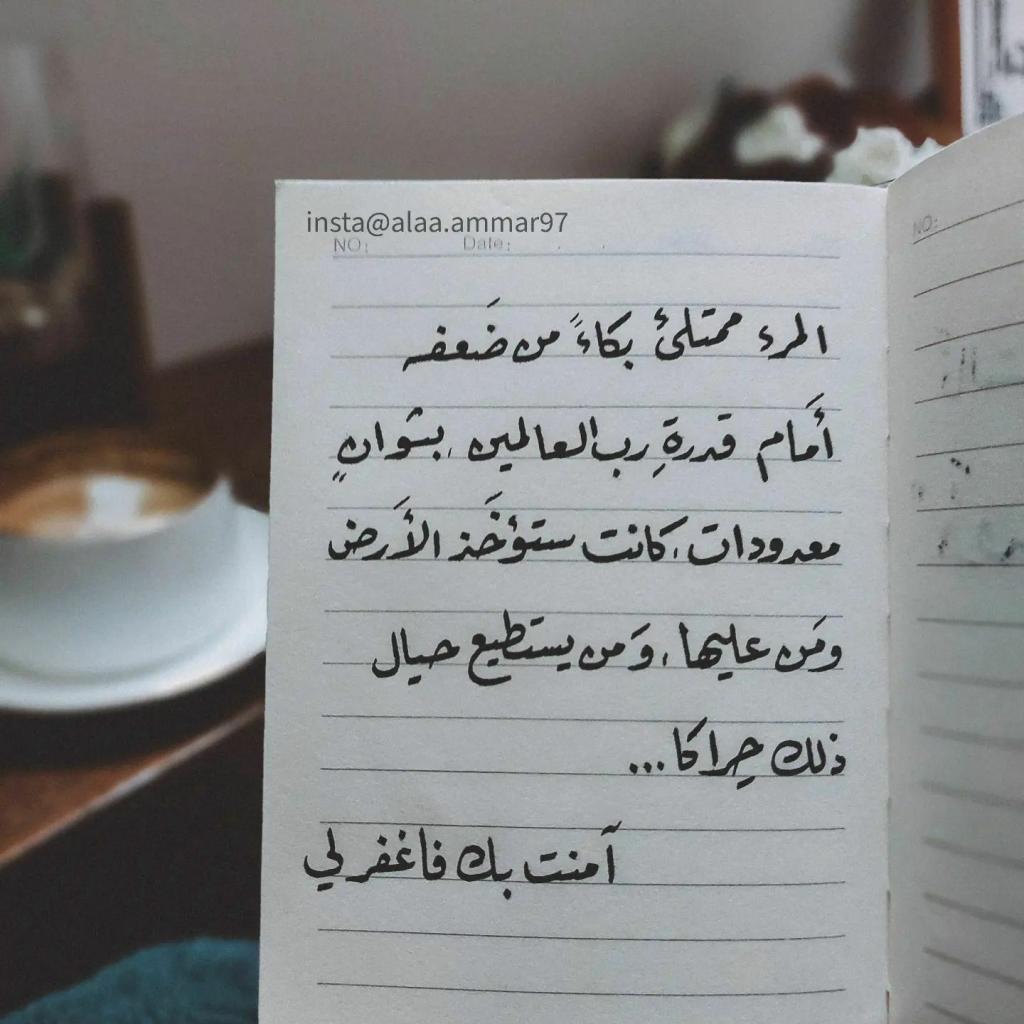 insta@alaa.ammar97
NO: Date:
NO:
المرء ممتلئ بكاءً من ضَعفه
أَمام قدرةِ رب العالمين، بثوانٍ
معدودات، كانت ستؤخَذ الأَرض
ومَن عليها، وَمن يستطيع حيال
ذلك حِراكا...
آمنت بك فاغفر لي